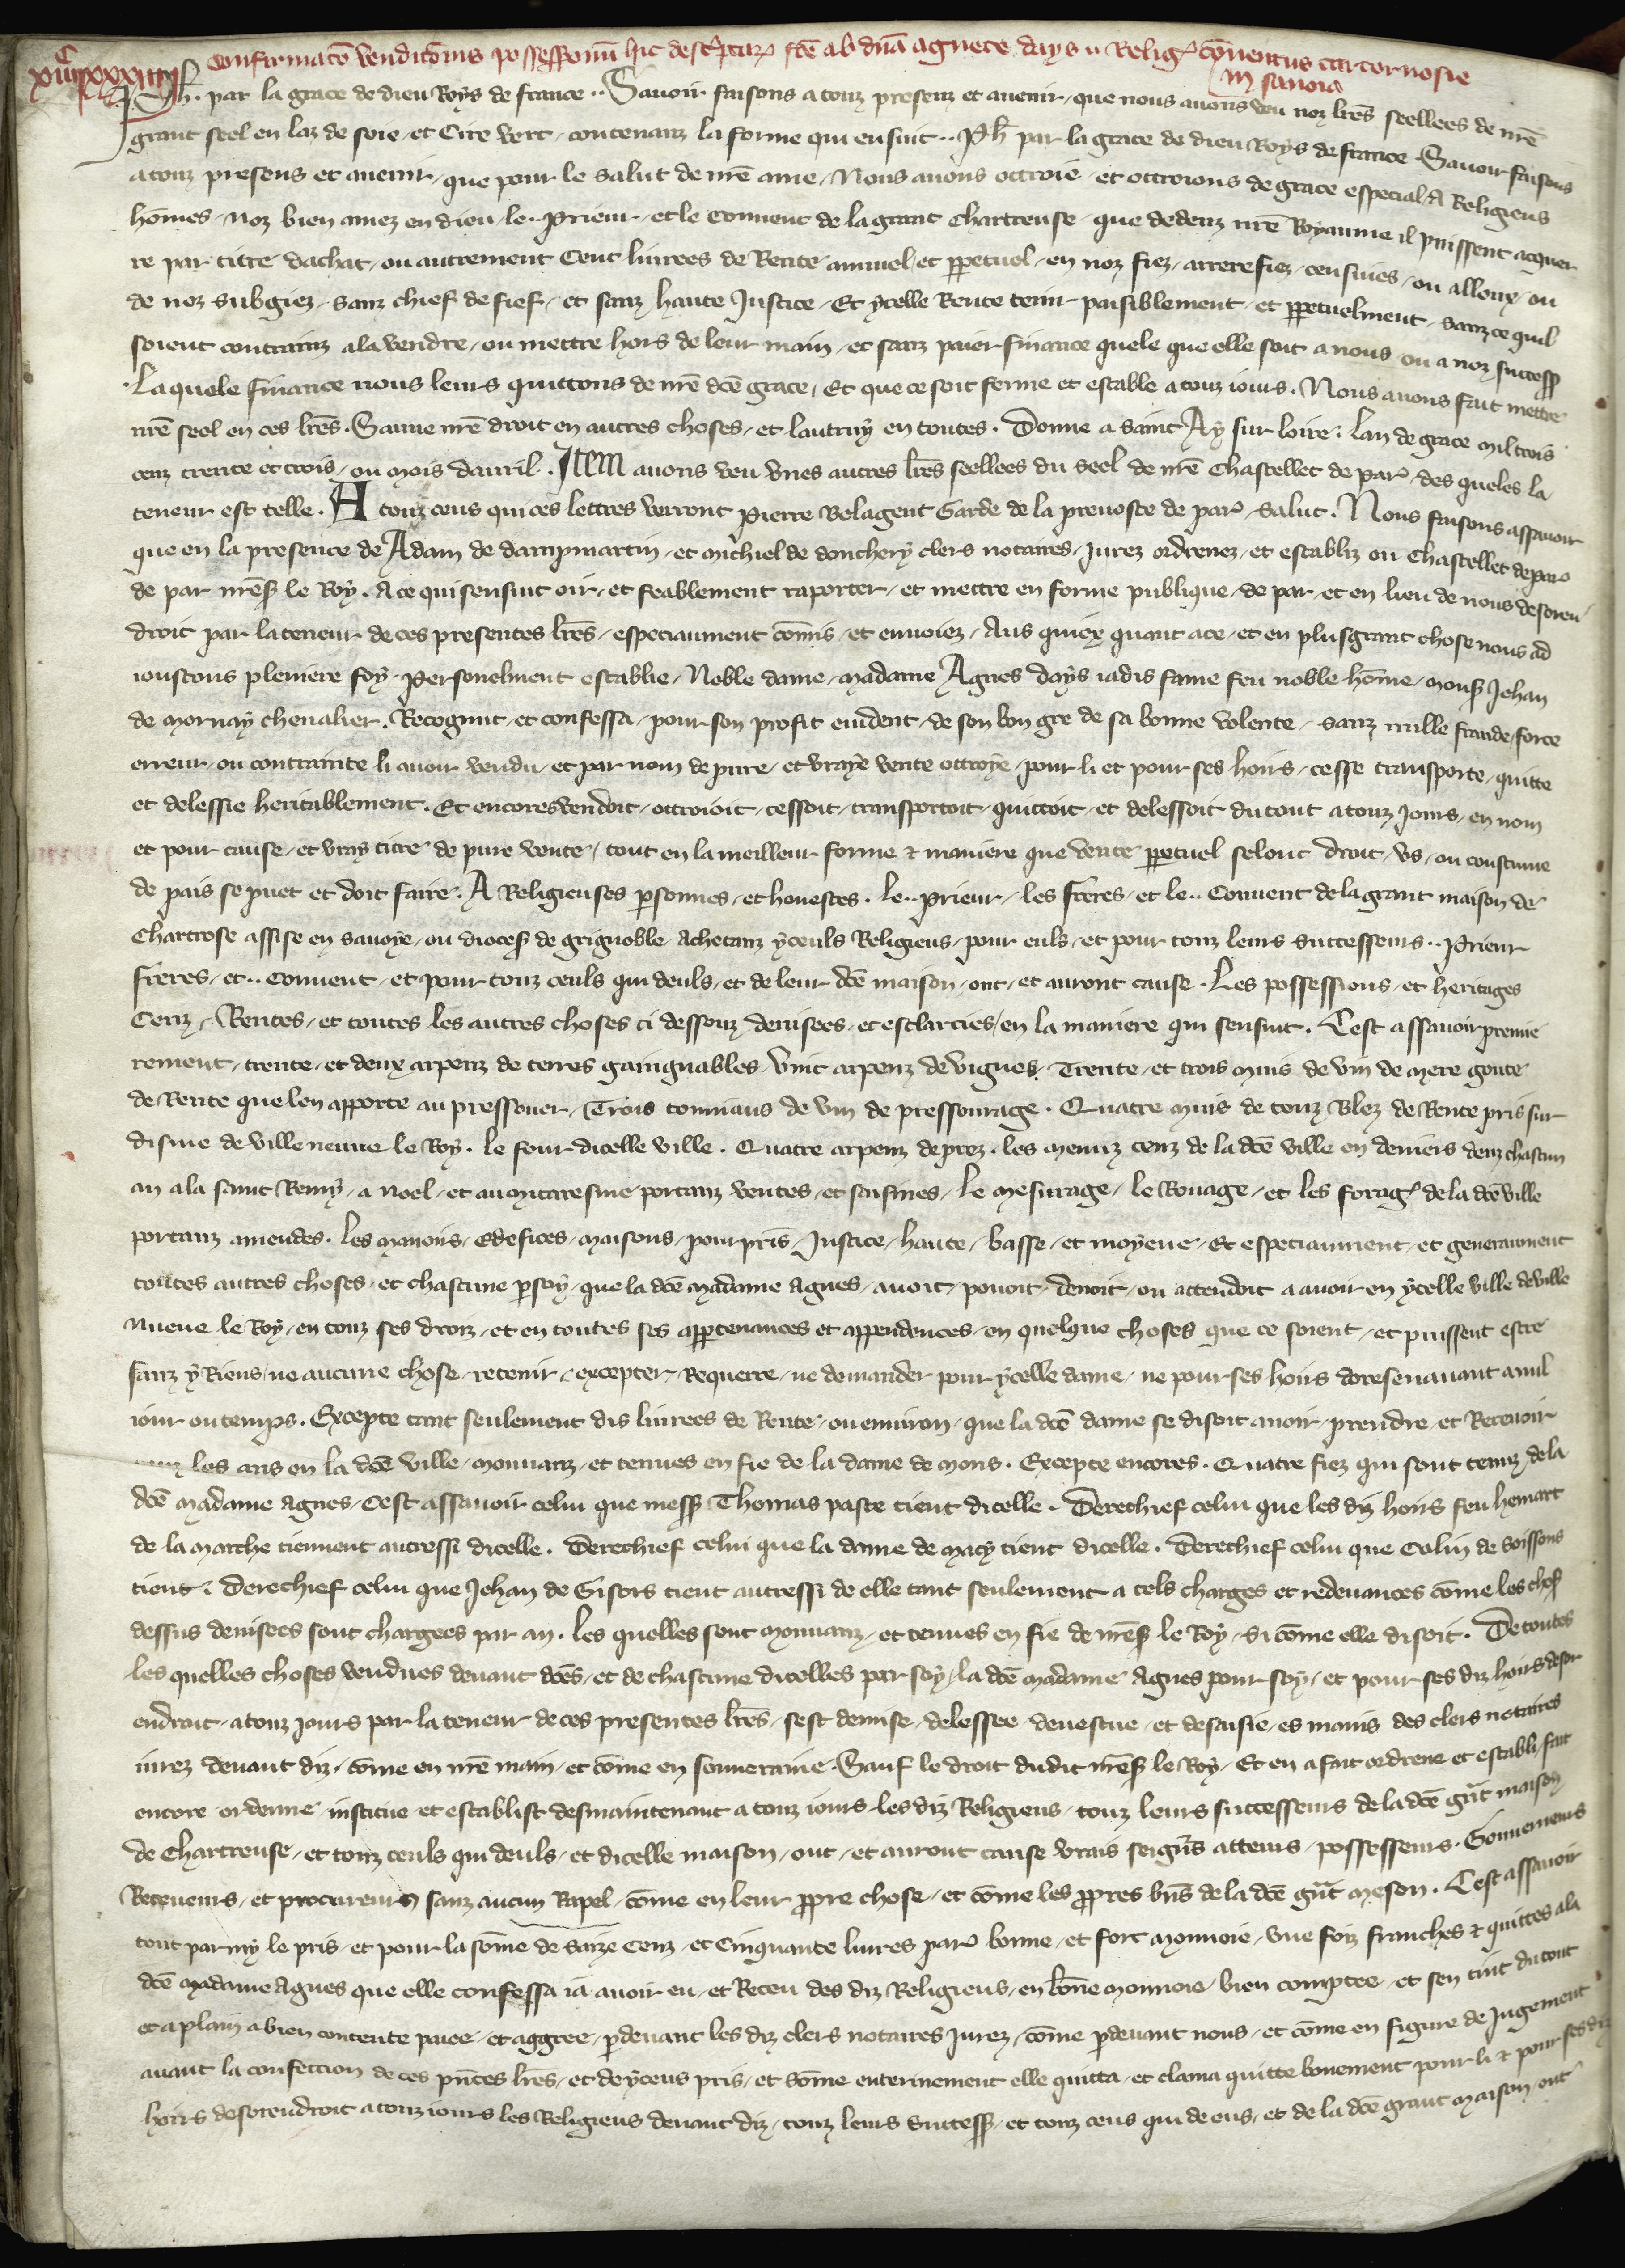 Confirmacõ vendicõnis possessionũ hic descͥptarꝝ fcẽ ab dnã agnece days .. Religꝭ cõventus cartornosie
in sanoia
xiiiiᶜxxxiiii
Ph. par la grace de dieu Roys de france .. Savoir faisons a touz presenz et avenir, que nous avons veu noz lrẽs seellees de nrẽ
grant seel en laz de soie, et Cire vert, contenanz la forme qui ensuit .. Ph par la grace de dieu Roys de france. Savoir faisons
a touz presens et avenir, que pour le salut de nrẽ ame, Nous avons ottroie et ottroions de grace especial, A Religieus
hõmes, noz bien amez en dieu, le .. Prieur, et le Convent de la grant Chartreuse, que dedenz nrẽ Royaume il puissent acquer
re par titre dachat, ou autrement Cent livrees de Rente annuel et ppetuel, en noz fiez, arrerefiez, censives, ou alloux, ou
de noz subgiez, sanz chief de fief, et sanz haute Justice, Et ycelle Rente tenir paisiblement, et ppetuelment, sanz ce quil
soient contrainz a la vendre, ou mettre hors de leur main, et sanz paier finance quele que elle soit a nous ou a noz success
Laquele finance nous leurs quittons de nrẽ dcẽ grace, Et que ce soit ferme et estable a touz iours. Nous avons fait mettre
nrẽ seel en ces lrẽs. Sauve nrẽ droit en autres choses, et lautruy en toutes. Donne a saint Ay sur loire. Lan de grace mil trois
cenz trente et trois, ou mois davril. Item avons veu unes autres lrẽs seellees du seel de nrẽ Chastellet de parꝭ, des queles la
teneur est telle. A touz ceus qui ces lettres verront Pierre Belagent Garde de la prevoste de parꝭ, salut. Nous faisons assavoir
que en la presence de Adam de dampmartin, et michiel de donchery clers notaires, Jurez ordrenez, et establiz ou Chastellet de parꝭ
de par nrẽs le Roy. A ce qui sensuit oir, et feablement raporter, et mettre en forme publique, de par, et en lieu de nous desoren
droit par la teneur de ces presentes lrẽs, especiaument cõmis, et envoiez, Aus quiex quant a ce, et en plus grant chose nous ad
ioustons pleniere foy. Personelment establie, Noble dame, madame Agnes days iadis fame feu noble hõme, mons Jehan
de mornay chevalier. Recognut, et confessa, pour son profit evident, de son bon gre de sa bonne volente, sanz nulle fraude, force
erreur, ou contrainte li avoir vendu, et par nom de pure, et vraye vente ottroye, pour li et pour ses hoirs, cesse transporte, quitte
et delessie heritablement. Et encores vendoit, ottroioit, cessoit, transportoit, quittoit, et delessoit du tout a touz Jours, en nom
et pour cause, et vray titre de pure vente, tout en la meilleur forme & maniere que vente ppetuel selonc droit, us, ou coustume
de pais se puet et doit faire. A Religieuses psonnes, et honestes. le .. prieur, les freres, et le .. Convent de la grant maison de
Chartrose assise en savoye, ou dioces de grignoble, Achetanz yceuls Religieus, pour euls, et pour touz leurs successeurs .. Prieur
freres, et .. Convent, et pour touz ceuls qui deuls, et de leur dcẽ maison, ont, et auront cause. Les possessions, et heritages
Cenz, Rentes, et toutes les autres choses ci dessouz devisees, et esclarcies, en la maniere qui sensuit. Cest assavoir premie
rement, trente, et deux arpenz de terres gaingnables. Vint arpenz de vignes. Trente, et trois muis de vin de mere goute
de Rente que len apporte au pressouer, Trois tonniaus de vin de pressourage. Quatre muis de touz Blez de Rente pris sur
disme de ville neuve le Roy. le four dicelle ville. Quatre arpenz de prez. les menuz cenz de la dcẽ ville en deniers deuz chascun
an a la saint Remy, a noel, et au mitaresme portanz ventes, et saisines, le mesurage, le Rouage, et les foragꝭ de la dcẽ ville
portanz amendes. les manoirs, edefices, maisons, pourpris, Justice, haute, basse, et moyene, Et especiaument, et generaument
toutes autres choses, et chascune psoy, que la dcẽ madame Agnes, avoit, povoit, devoit, ou attendoit a avoir en ycelle ville de ville
nueve le Roy, en touz ses droiz, et en toutes ses appetenances et appendences, en quelque choses que ce soient, et puissent estre
sanz y Riens, ne aucune chose, retenir, excepter, Requerre, ne demander pour ycelle dame, ne pour ses hoirs doresenavant a nul
iour ou temps. Excepte tant seulement dis livrees de Rente, ou environ, que la dcẽ dame se disoit avoir, prendre, et Recevoir
touz les ans en la dcẽ ville, mouvanz, et tenues en fie de la dame de mons. Excepte encores. Quatre fiez qui sont tenuz de la
dcẽ madame Agnes, Cest assavoir celui que mess Thomas paste tient dicelle. Derechief celui que les diz hoirs feu hemart
de la marche tiennent autressi dicelle. Derechief celui que la dame de macy tient dicelle. Derechief celui que Colin de Soissons
tient. Derechief celui que Jehan de Gisors tient autressi de elle tant seulement a tels charges et redevances cõme les chos
dessus devisees sont chargees par an. les quelles sont mouvanz, et tenues en fie de nrẽs le Roy, si cõme elle disoit. De toutes
les quelles choses vendues devant dcẽs, et de chascune dicelles par soy, la dcẽ madame Agnes pour soy, et pour ses diz hoirs desor
endroit, a touz Jours par la teneur de ces presentes lrẽs, sest demise, delessee devestue, et desaisie, es mains des clers notaires
iurez devant diz, cõme en nrẽ main, et cõme en souveraine. Sauf le droit dudit nrẽs le Roy, Et en a fait ordrene et establi, fait
encore ordenne institue et establist desmaintenant a touz iours les diz Religieus, touz leurs successeurs de la dcẽ grãt maison
de Chartreuse, et touz ceuls qui deuls, et dicelle maison, ont, et auront cause vrais seigñrs atteurs, possesseurs. Gouverneurs
Receveurs, et procureurs sanz aucun Rapel, cõme en leur ppre chose, et cõme les ppres biẽs de la dcẽ grãt meson. Cest assavoir
tout parmy le pris, et pour la sõme de saize Cenz, et Cinquante livres parꝭ bonne, et fort monnoie, une foiz franches & quittes a la
dcẽ madame Agnes que elle confessa ia avoir eu, et Receu des diz Religieus, en bõne monnoie bien comptee, et sen tint du tout
et a plain a bien contente paiee, et aggree, pdevant les diz clers notaires Jurez, cõme pdevant nous, et cõme en figure de Jugement
avant la confection de ces pñtes lrẽs, et de yceus pris, et sõme enterinement elle quitta, et clama quitte bonement pour li & pour ses diz
hoirs desorendroit a touz iours les Religieus devant diz, touz leurs Success, et touz ceus qui de eus, et de la dcẽ grant maison ont